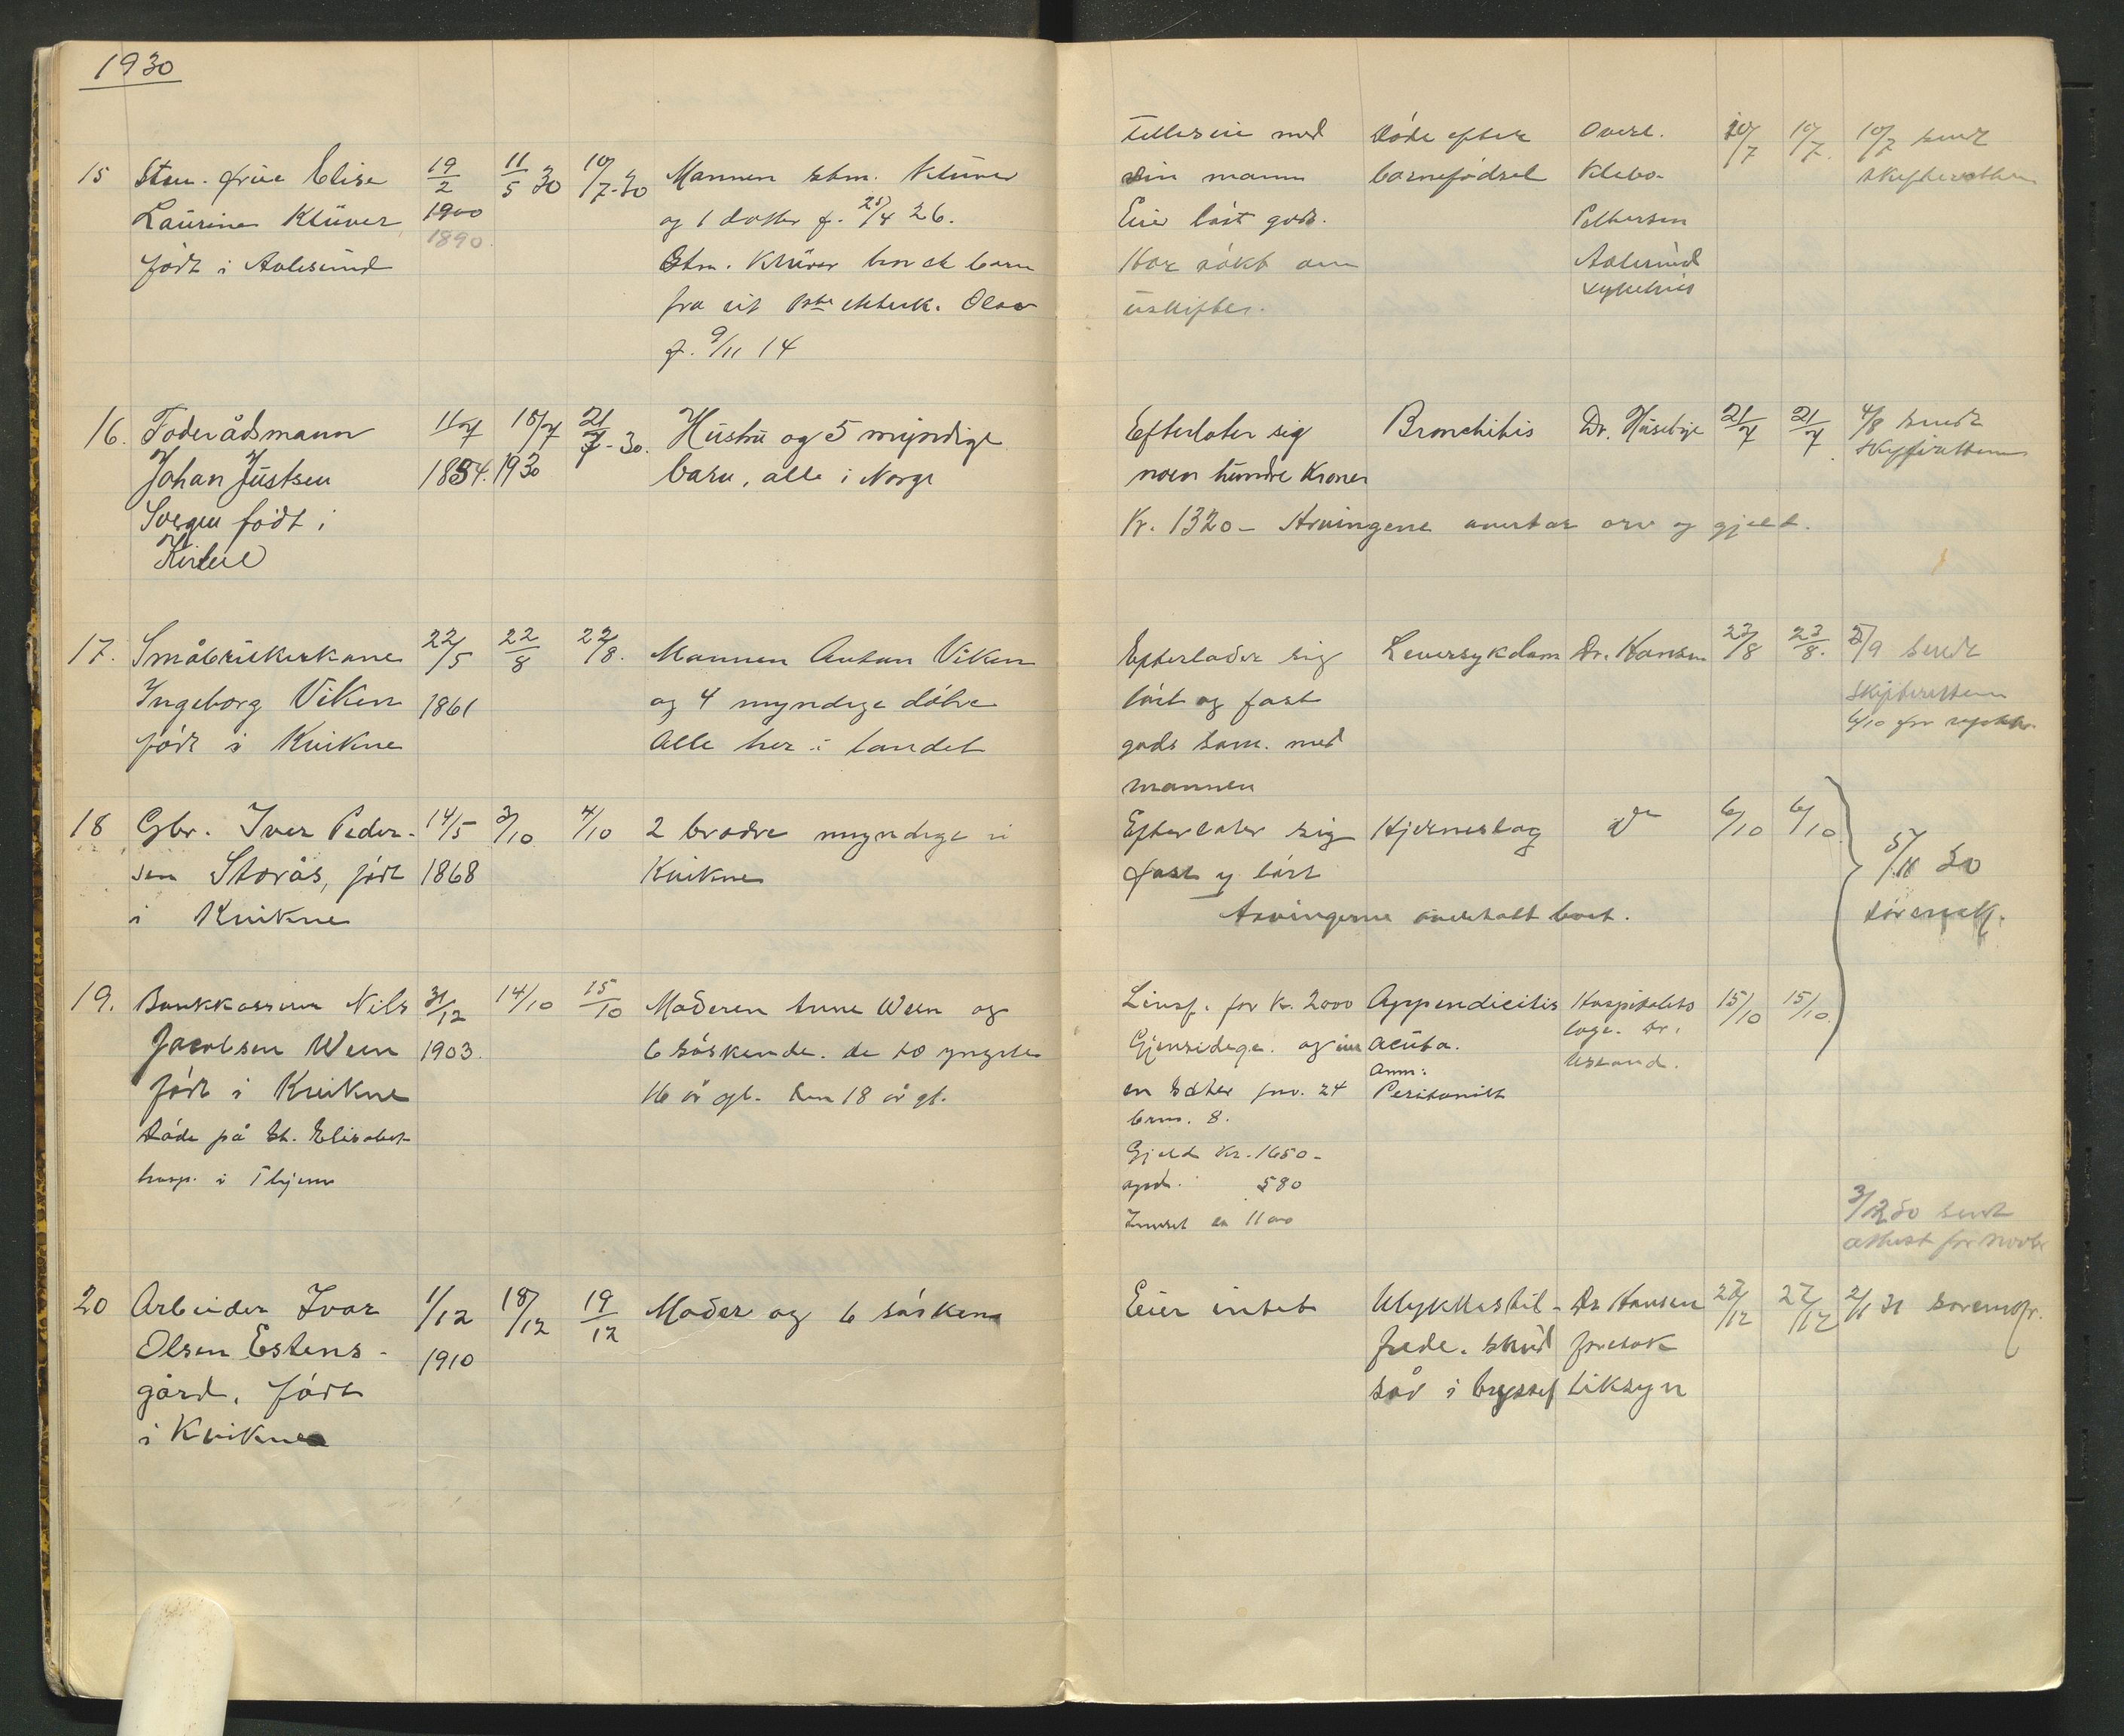 1930
15 Stm. frue Elise 19/2 11/5 30 10/7-30 Mannen stm. Klüver
Laurine Klüver 1900 og 1 datter f. 25/4 26.
1890.
født i Aalesund Stm. Klüver har et barn
fra sit 1ste ekteck. Olav
f. 9/11 14
Felleseie med Døde efter Overl. 10/7 10/7. 10/7 sendt
sin mann barnefødsel Klebo- skifteretten
Eier løst gods. Pettersen
Har søkt om Aalesund
uskiftet. sykehus
16. Foderådsmann 11/7 15/7 21/7-30. Hustru og 5 myndige
Johan Justsen 1854. 1930 barn, alle i Norge
født i
Efterlater sig Bronchitis Dr. Húsebye 21/7 21/7. 4/8 sendt
noen hundre Kroner skifteretten
Kr. 1320- Arvingene overtar arv og gjeld.
17. Småbrukerkone 22/5 22/8 22/8. Mannen Anton Viken
Ingeborg Viken 1861 og 4 myndige døtre
født i Kvikne Alle her i landet
Efterlader sig Leversykdom Dr. Hansen 23/8 23/8. 5/9 sendt
løst og fast skifteretten
gods sam. med 6/10 for
mannen
18 Gbr. Iver Peder- 14/5 3/10 4/10 2 brødre myndige i
sen Storås, født 1868 Kvikne
i Kvikne
Efterlater sig Hjerneslag do 6/10 6/10
fast og løst 5/11 30
Arvingerne overtatt boet. sorenskr.
19. Bankkasserer Nils 31/12 14/10 15/10 Moderen Anne Ween og
Jacobsen Ween 1903. 6 søskende. de to yngste
født i Kvikne 16 år gl. den 18 år gl.
Døde på St. Elisabet
hosp. i Thjem
Livsf. for Kr. 2000 Appendicitis Hospitalets 15/10 15/10.
Gjensidige. og acuta. læge. Dr.
Anm:
en sæter gnr. 24 Peritonitt
brnr. 8.
Gjeld Kr. 1650-
580
11000
3/12 30 sendt
attest for novbr
20 Arbeider Ivar 1/12 18/12 19/12 Moder og 6 søsken
Olsen Estens- 1910
gård, født
i Kvikne
Eier intet Ulykkestil- Dr Hansen 22/12 22/12 2/1 31 sorenskr.
fælde. skud foretok
sår i brystet liksyn